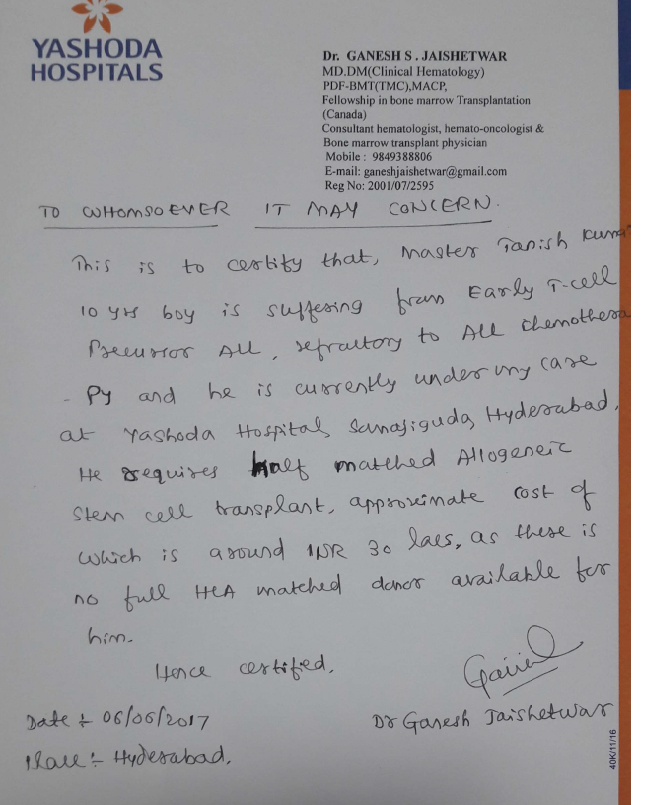 YASHODA
HOSPITALS
Dr. GANESH S . JAISHETWAR
MD.DM(Clinical Hematology)
PDF-BMT(TMC),MACP,
Fellowship in bone marrow Transplantation
(Canada)
Consultant hematologist, hemato-oncologist &
Bone marrow transplant physician
Mobile : 9849388806
E-mail: ganeshjaishetwar@gmail.com
Reg No: 2001/07/2595
TO WHOMSOEVER IT MAY CONCERN.
This is to certify that, Master Tanish Kumar
10 yrs boy is suffering from Early T-cell
Precursor ALL, refractory to ALL chemothera
- Py and he is currently under my care
at Yashoda Hospital, Somajiguda, Hyderabad.
He requires half matched Allogeneic
Stem cell transplant, approximate cost of
which is around INR 30 lacs, as there is
no full HLA matched donor available for
him.
Hence certified.
Dr Ganesh Jaishetwar
Date :- 06/06/2017
Place :- Hyderabad.
40K/11/16